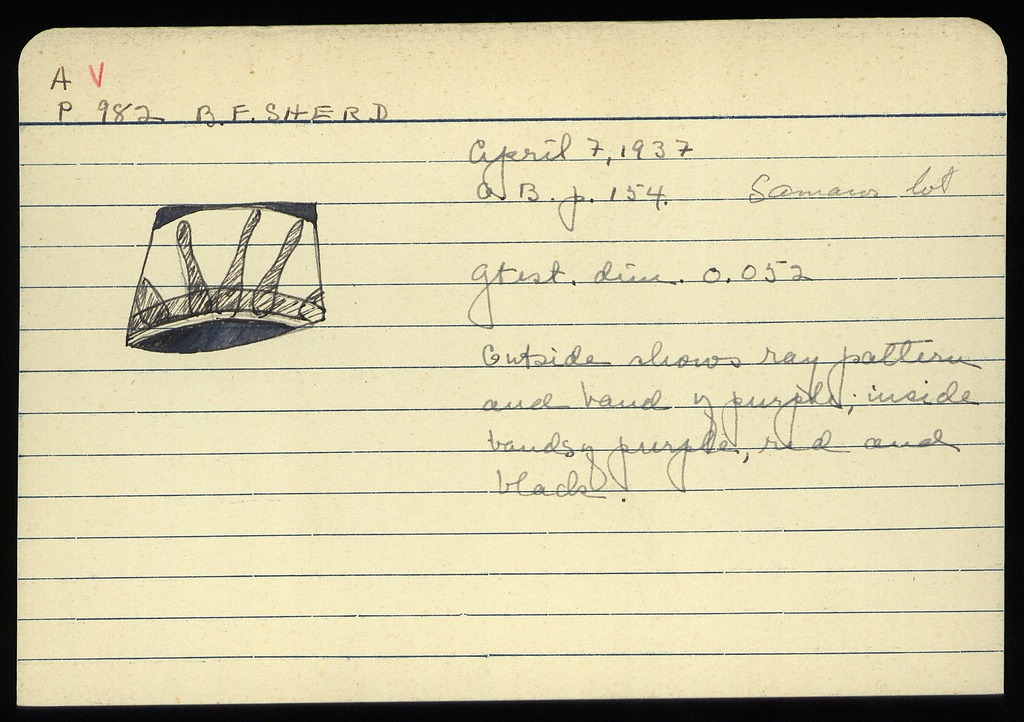 A V
P 982 B.F. SHERD
April 7, 1937
B. p. 154. lot
gtest. dim. 0.052
Outside shows ray pattern
and band of purple; inside
bands of purple, red and
black.